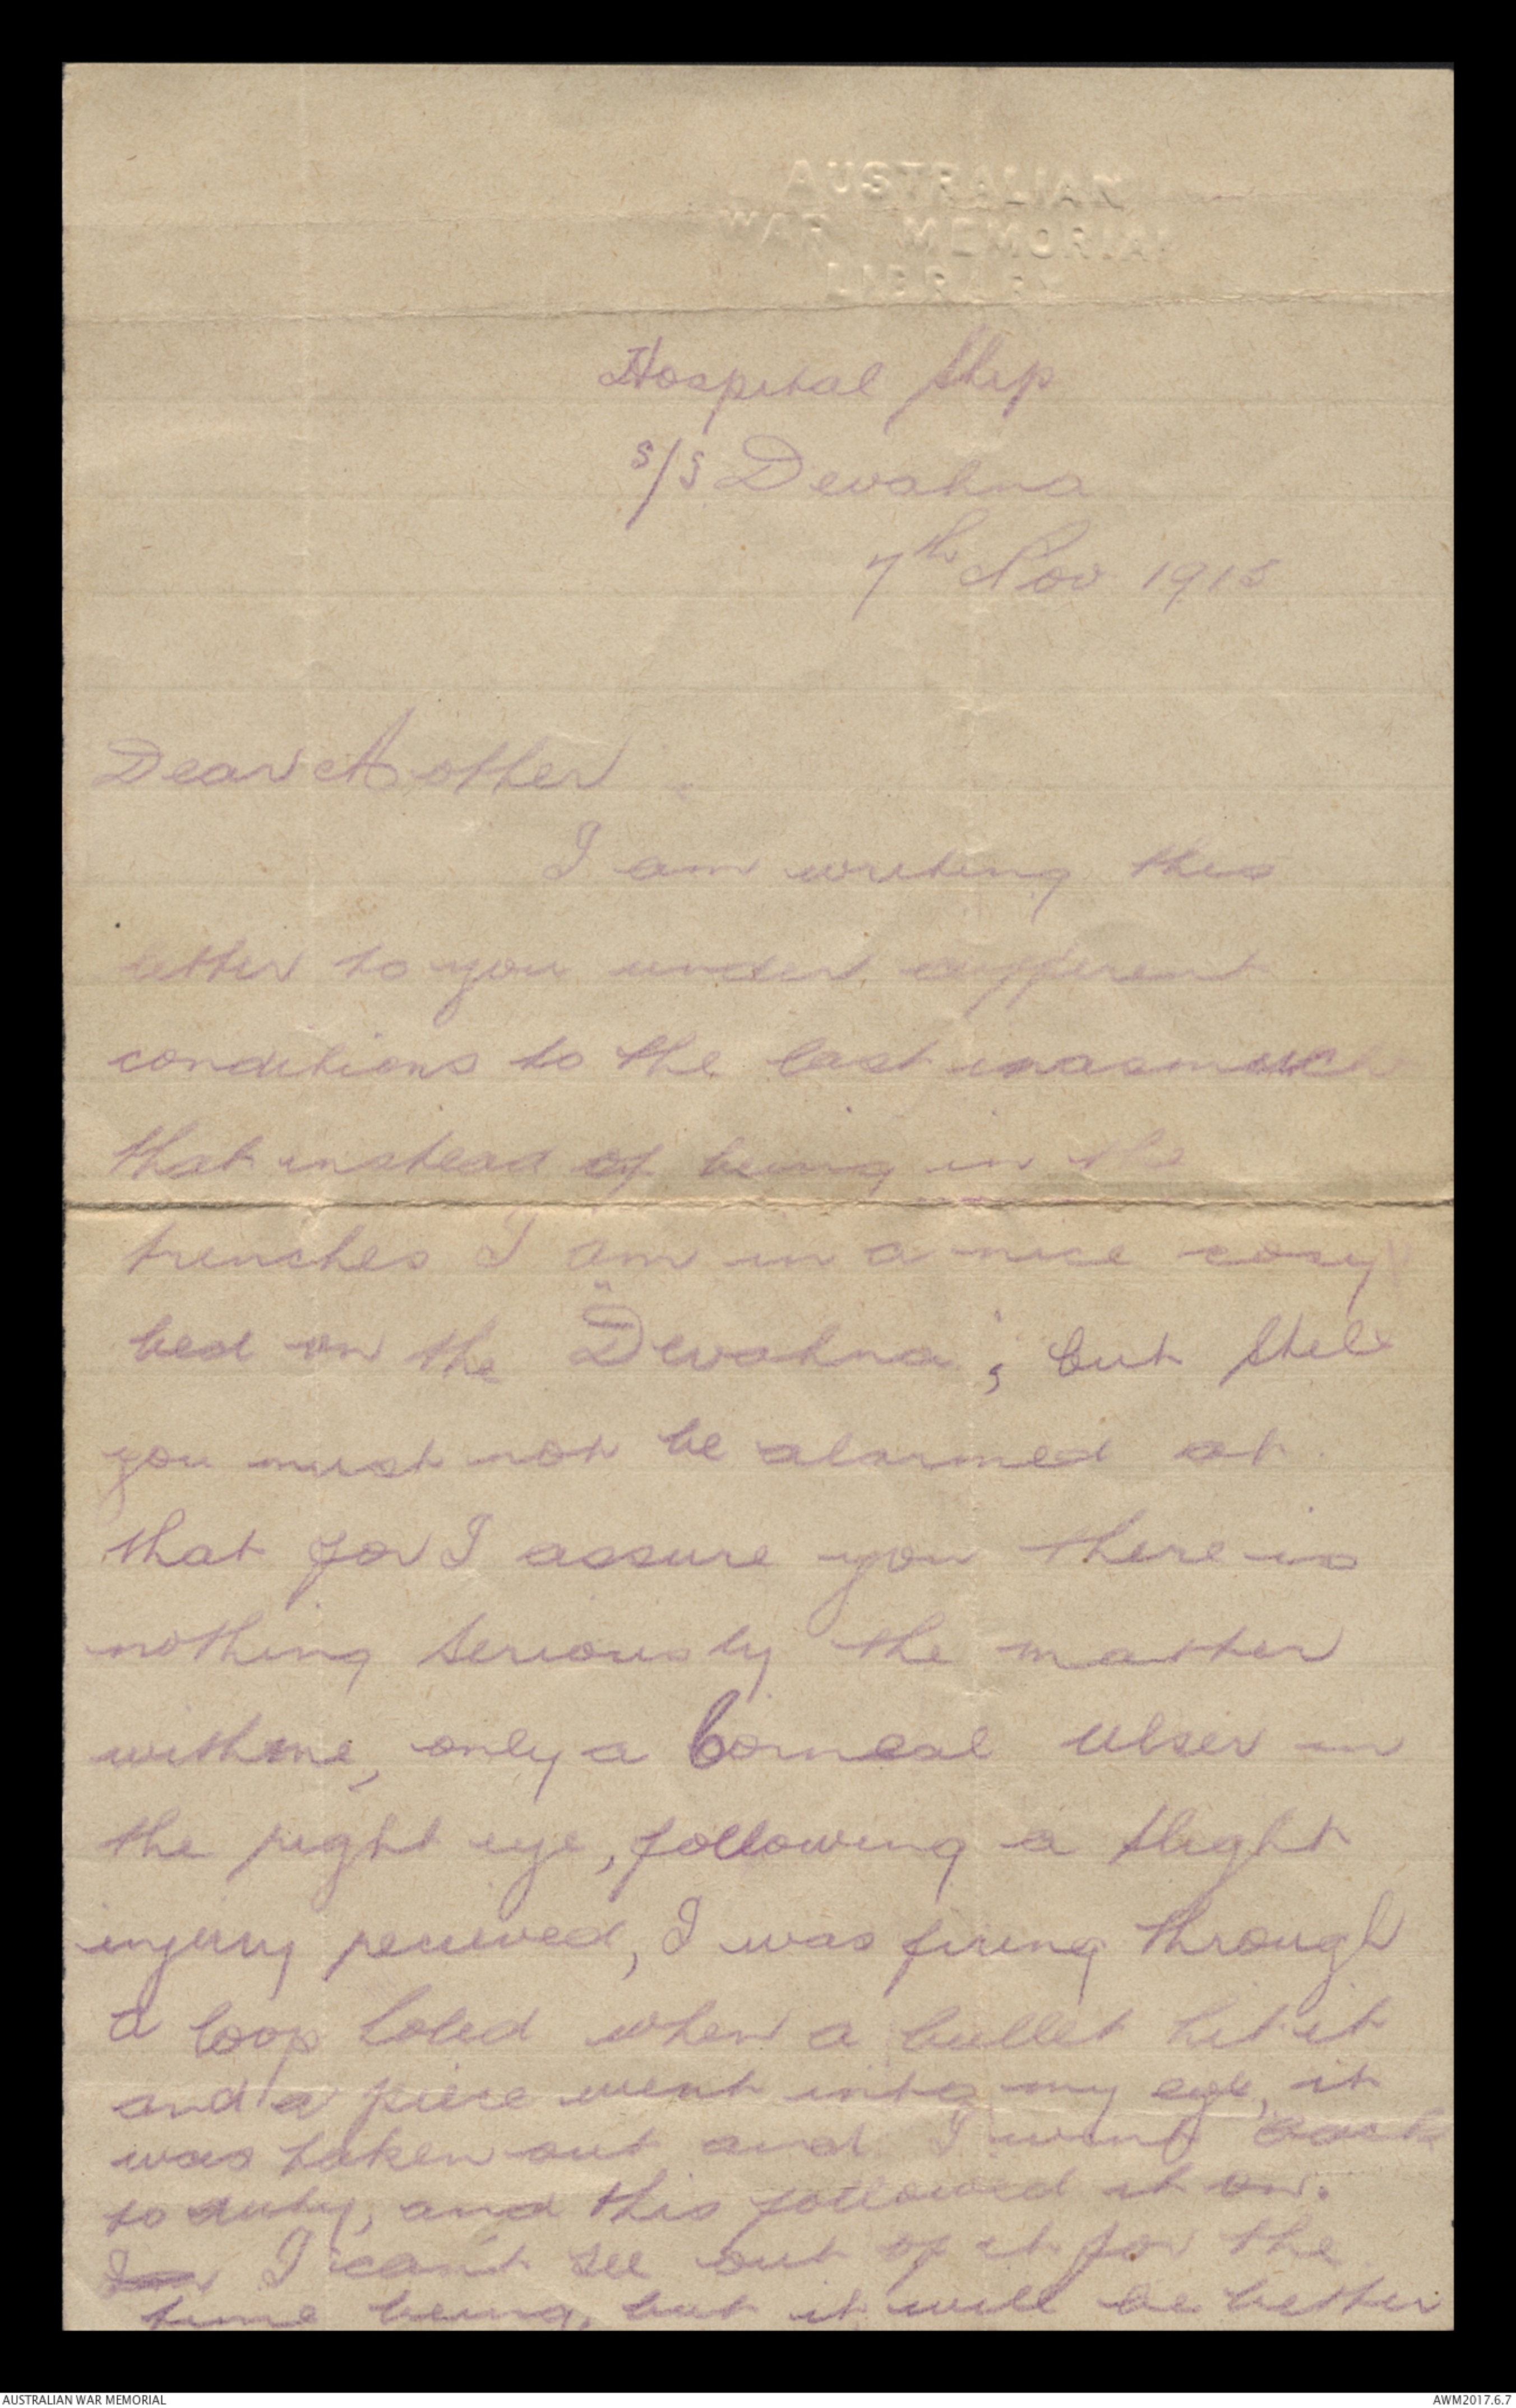 AUSTRALIAN
WAR MEMORIAL
LIBRARY
Hospital Ship
s/s Devahna
7th Nov 1915
Dear Mother
I am writing this
letter to you under different
conditions to the last inasmuch
that instead of being in the
trenches I am in a nice cosy
bed on the "Devahna", but still
you must not be alarmed at
that for I assure you there is
nothing seriously the matter
with me, only a Corneal ulser in
the right eye, following a slight
injury received, I was firing through
a loop holed when a bullet hit it
and a piece went into my eye, it
was taken out and I went back
to duty, and this followed it on.
I can't see out of it for the
time being, but it will be better
AUSTRALIAN WAR MEMORIAL
AWM2017.6.7